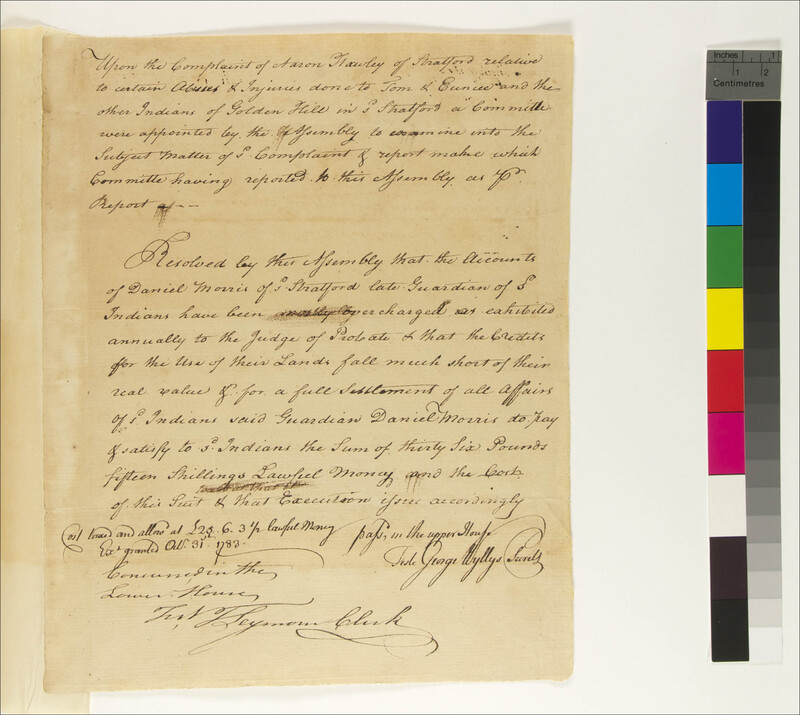 Upon the Complaint of Aaron Hawley of Stratford relative
to certain Abuses & Injuries done to Tom & Eunice and the
other Indians of Golden Hill in sd Stratford a Committe
were appointed by the Assembly to examine into the
Subject Matter of sd Complaint & report make which
Committe having reported to this Assembly as pr
Report
Resolved by this Assembly that the Accounts
of Daniel Morris of sd Stratford late Guardian of sd
Indians have been overcharged as exhibited
annually to the Judge of Probate & that the Credits
for the Use of their Lands fall much short of their
real value & for a full Settlement of all Affairs
of sd Indians said Guardian Daniel Morris do pay
& satisfy to sd Indians the Sum of thirty Six Pounds
fifteen Shillings Lawful Money and the Cost
of this Suit & that Execution issue accordingly
Cost taxed and allowd at £25. 6. 3 1/2 lawful Money
Exn granted Octr 31st 1783.
passd in the upper House
Teste George Wyllys Secrety
Concurred in the
Lower House
Test T Seymour Clerk
Inches
1 2
Centimetres